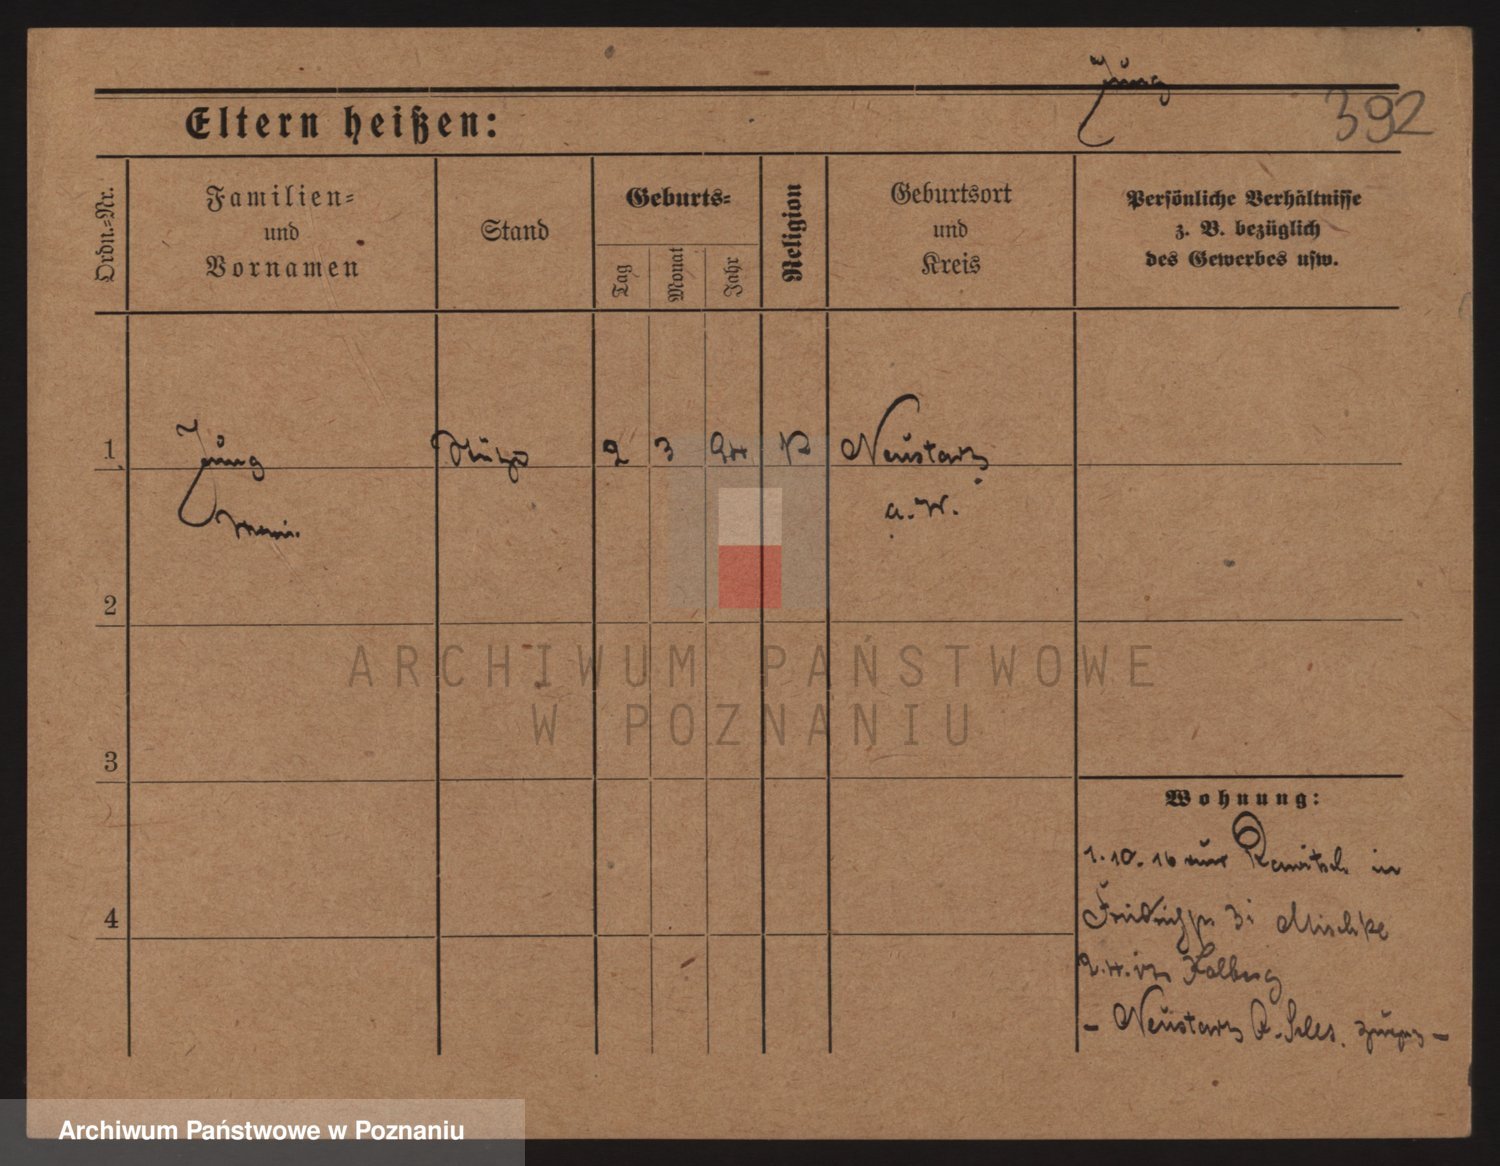 Jung
392
Eltern heißen:
Ordn.-Nr.
Familien-
und
Vornamen
Stand
Geburts-
Tag
Monat
Jahr
Religion
Geburtsort
und
Kreis
Persönliche Verhältnisse
z. B. bezüglich
des Gewerbes usw.
1
Jung
2 3
Neustadt
a. W.
2
ARCHIWUM PAŃSTWOWE
W POZNANIU
3
Wohnung:
4
1.10.16 Rawitsch in
3 Mischke
Kolberg
- Neustadt O. Schles. -
Archiwum Państwowe w Poznaniu